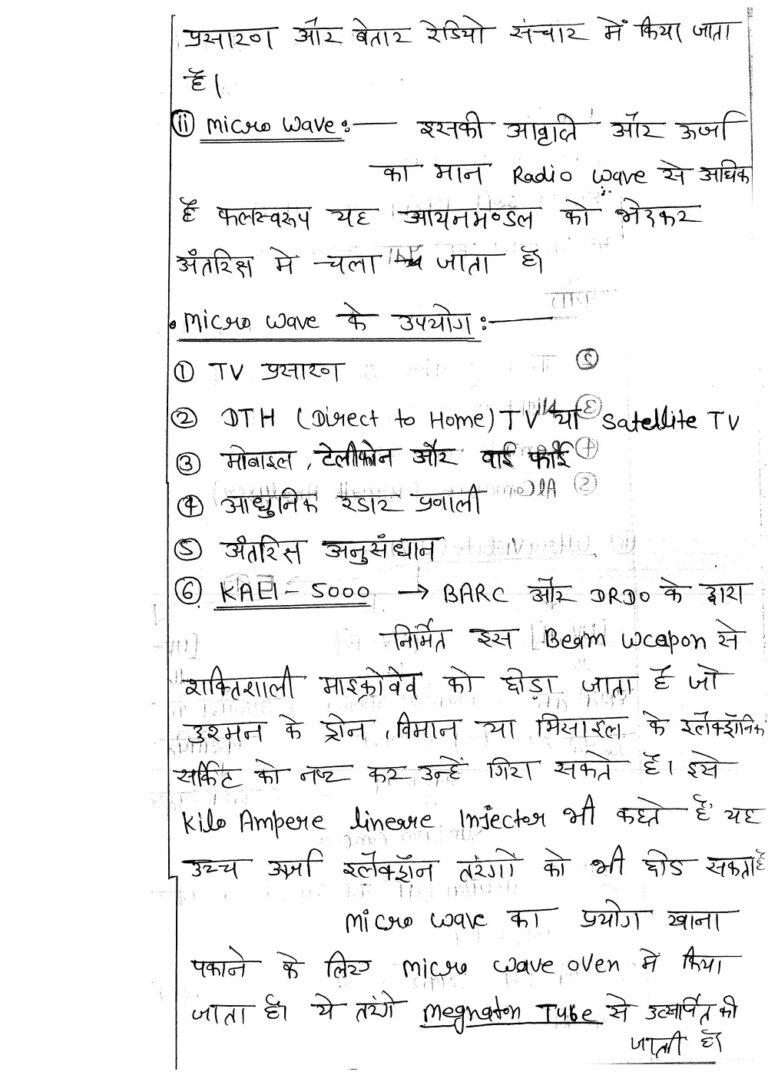 प्रसारण और बेतार रेडियो संचार में किया जाता
है।
(ii) Micro Wave :— इसकी आवृति और ऊर्जा
का मान Radio wave से अधिक
है फलस्वरूप यह आयनमण्डल को भेदकर
अंतरिक्ष मे चला जाता है।
• Micro Wave के उपयोग :—
① TV प्रसारण
② DTH (Direct to Home) TV या Satellite TV
③ मोबाइल, टेलीफोन और वाई फाई
④ आधुनिक रडार प्रणाली
⑤ अंतरिस अनुसंधान
⑥ KALI - 5000 → BARC और DRDO के द्वारा
निर्मित इस Beam weapon से
शक्तिशाली माइक्रोवेव को छोड़ा जाता है जो
दुश्मन के ड्रोन, विमान या मिसाइल के इलैक्ट्रॉनिक
सर्किट को नष्ट कर उन्हें गिरा सकते है। इसे
Kilo Ampere lineare Injector भी कहते है यह
उच्च ऊर्जा इलैक्ट्रॉन तरंगो को भी छोड सकता है
Micro wave का प्रयोग खाना
पकाने के लिए micro wave oven मे किया
जाता है। ये तरंगे Megnaton Tube से उत्सर्पित की
जाती है।